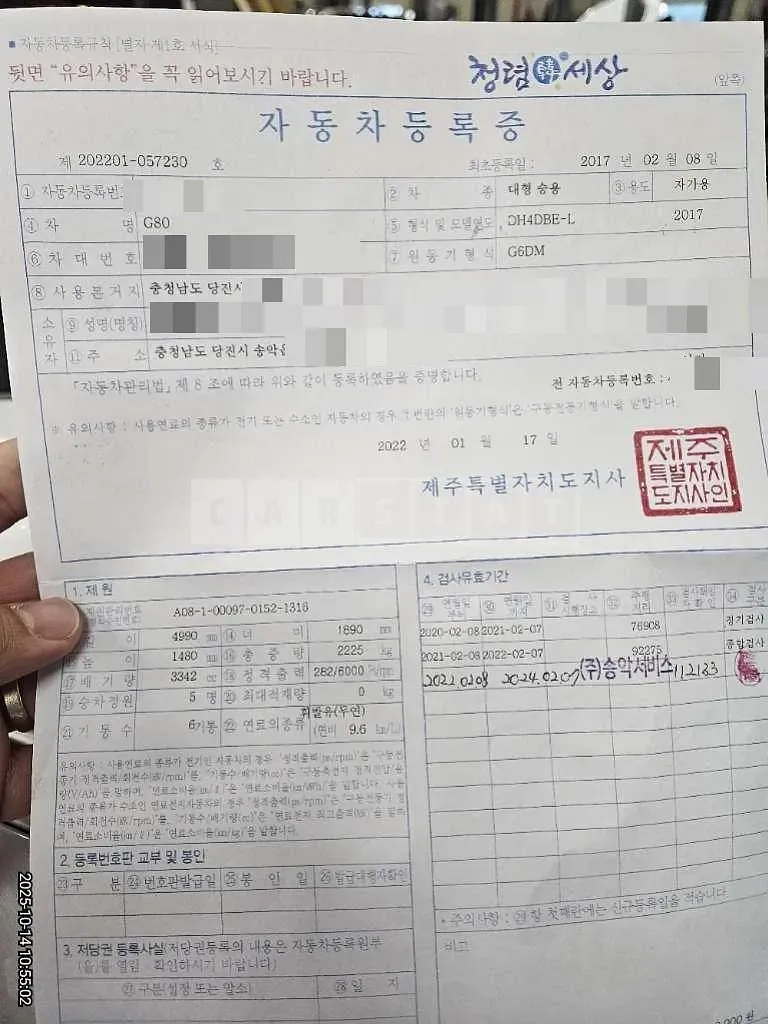 ■ 자동차등록규칙 [별지 제1호 서식]
뒷면 "유의사항"을 꼭 읽어보시기 바랍니다.
청렴 韓 세상
(앞쪽)
자동차등록증
제 202201-057230 호
최초등록일 : 2017 년 02 월 08 일
① 자동차등록번호
② 차 종 대형 승용 ③ 용도 자가용
④ 차 명 G80
⑤ 형식 및 모델연도 DH4DBE-L 2017
⑥ 차대번호
⑦ 원동기형식 G6DM
⑧ 사용본거지 충청남도 당진시
소유자
⑨ 성명(명칭)
⑪ 주 소 충청남도 당진시 송악읍
「자동차관리법」 제 8 조에 따라 위와 같이 등록하였음을 증명합니다.
전 자동차등록번호 :
※ 유의사항 : 사용연료의 종류가 전기 또는 수소인 자동차의 경우 ⑦번란의 '원동기형식'은 '구동전동기형식'을 말합니다.
2022 년 01 월 17 일
제주특별자치도지사
제주
특별자치
도지사인
1. 제원
A08-1-00097-0152-1316
길 이 4990 mm ⑭ 너 비 1890 mm
높 이 1480 mm ⑯ 총 중 량 2225 kg
⑰ 배 기 량 3342 cc ⑱ 정격출력 282/6000 Ps/rpm
⑲ 승차정원 5 명 ⑳ 최대적재량 0 kg
㉑ 기 통 수 6기통 ㉒ 연료의종류 휘발유(무연)
(연비 9.6 km/L)
유의사항 : 사용연료의 종류가 전기인 자동차의 경우 '정격출력(ps/rpm)'은 '구동전
동기 정격출력/회전수(kW/rpm)'를, '기통수/배기량(cc)'은 '구동축전지 정격전압/용
량(V/Ah)'을 말하며, '연료소비율(km/ℓ)'은 '연료소비율(km/kWh)'을 말합니다. 사용
연료의 종류가 수소인 연료전지자동차의 경우 '정격출력(ps/rpm)'은 '구동전동기 정
격출력/회전수(kW/rpm)'를, '기통수/배기량(cc)'은 '연료전지 최고출력(kw)'을 말하
며, '연료소비율(km/ℓ)'은 '연료소비율(km/kg)'을 말합니다.
2. 등록번호판 교부 및 봉인
㉓ 구 분 ㉔ 번호판발급일 ㉕ 봉 인 일 ㉖ 발급대행자확인
3. 저당권 등록사실(저당권등록의 내용은 자동차등록원부
(을)를 열람 확인하시기 바랍니다)
㉗ 구분(설정 또는 말소) ㉘ 일 자
4. 검사유효기간
㉙ 연월일부터 ㉚ 연월일까지 ㉛ 검 사 시행장소 ㉜ 주행거리 ㉝ 검사책임자확인 ㉞ 검사구분
2020-02-08 2021-02-07 76908 정기검사
2021-02-08 2022-02-07 92275 종합검사
2022.02.08 2024.02.07 (주)송악서비스 112133
* 주의사항 : ㉙항 첫째란에는 신규등록일을 적습니다.
비고
000 원
2025-10-14 10:55:02